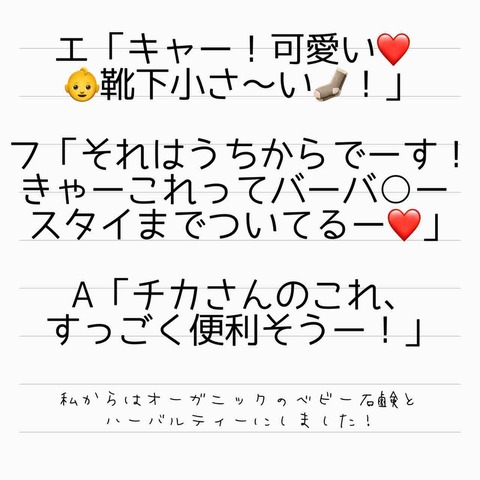 エ「キャー！可愛い❤️
👶靴下小さ〜い🧦！」
フ「それはうちからでーす！
きゃーこれってバーバ○ー
スタイまでついてるー❤️」
A「チカさんのこれ、
すっごく便利そうー！」
私からはオーガニックのベビー石鹸と
ハーバルティーにしました！